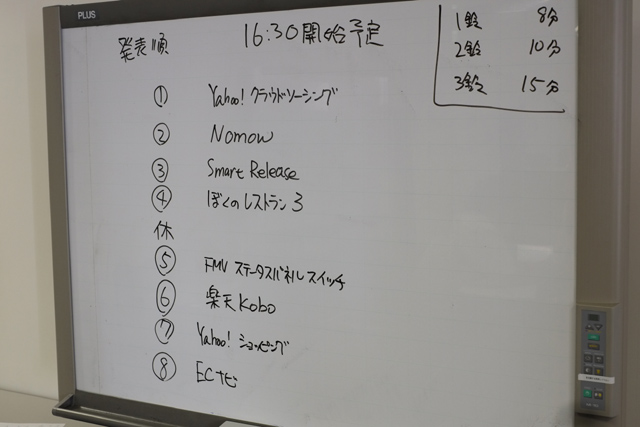 PLUS
発表順 16:30開始予定
1鈴 8分
2鈴 10分
3鈴 15分
① Yahoo! クラウドソーシング
② Nomow
③ Smart Release
④ ぼくのレストラン3
休
⑤ FMV ステータスパネルスイッチ
⑥ 楽天 Kobo
⑦ Yahoo! ショッピング
⑧ ECナビ